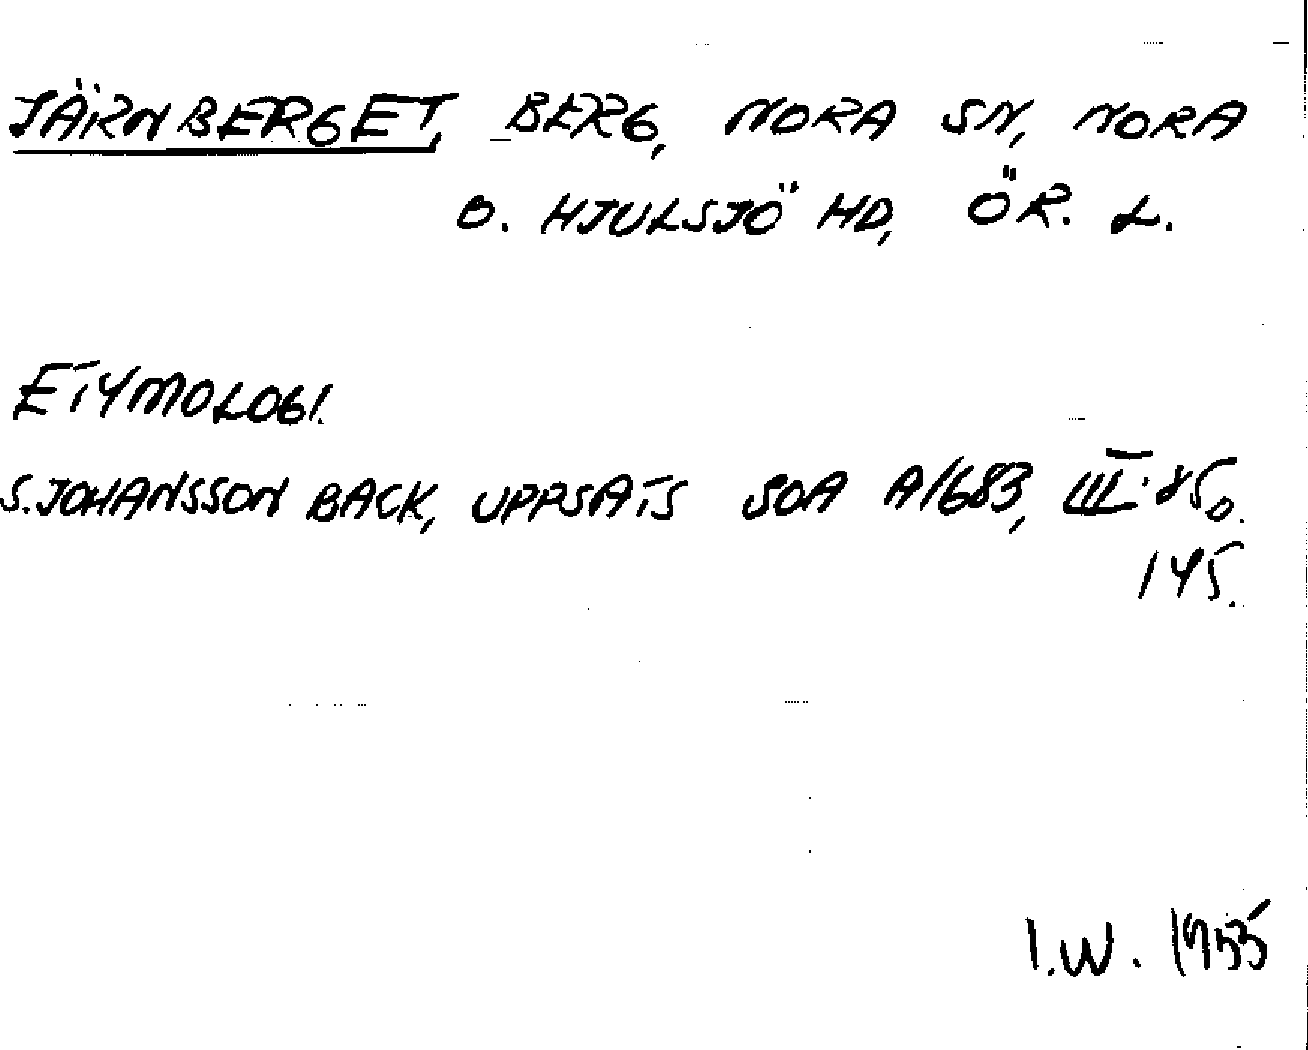 JÄRNBERGET, BERG, NORA SN, NORA
O. HJULSJÖ HD, ÖR. L.
ETYMOLOGI.
S. JOHANSSON BACK, UPPSATS SOA A/683, III: 85 o.
145.
I.W. 1955